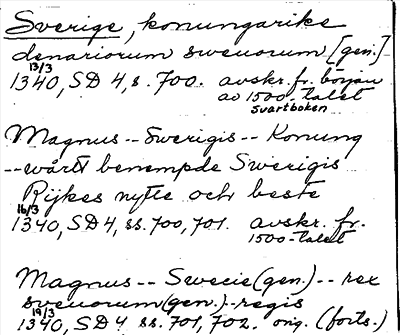 Sverige, konungarike
denariorum sweuorum [gen.]
13/3
1340, SD 4, s. 700. avskr. fr. början
av 1500-talet
Svartboken
Magnus -- Swerigis -- Konung
-- wårtt benempde Swerigis
Rijkes nytte och beste
16/3
1340, SD 4, ss. 700, 701. avskr. fr.
1500-talet
Magnus -- Swecie (gen.) -- rex
sweuorum (gen.) -- regis
19/3
1340, SD 4 ss. 701, 702. orig. (forts.)